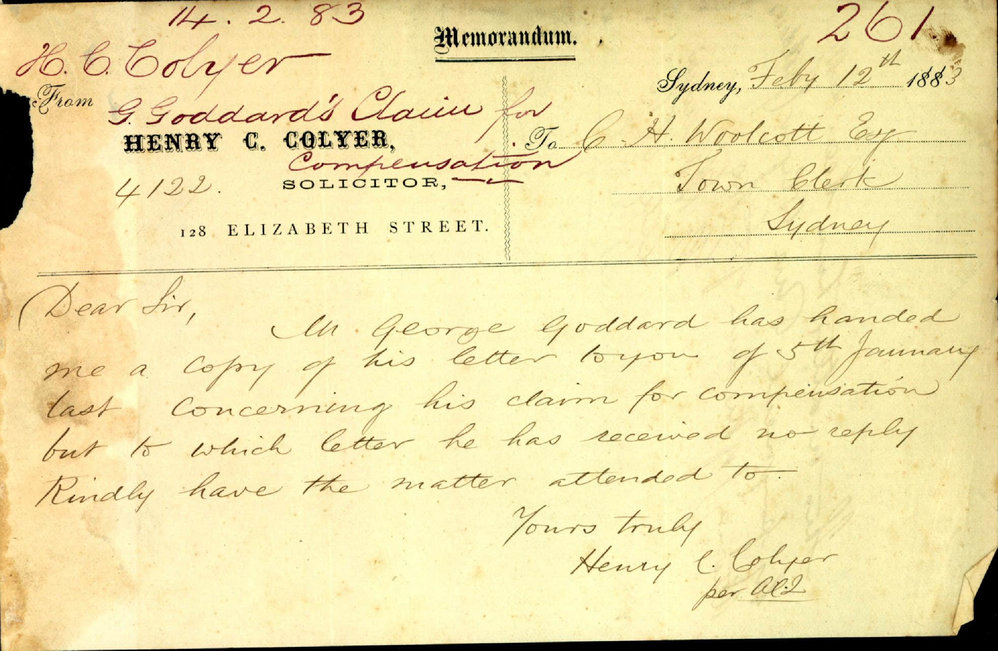 14. 2. 83
261
Memorandum.
H. C. Colyer
Sydney, Feby 12th 1883
From
G. Goddard's Claim for
HENRY C. COLYER,
To C. H. Woolcott Esq
Compensation
4122.
SOLICITOR,
Town Clerk
128 ELIZABETH STREET.
Sydney
Dear Sir,
Mr George Goddard has handed
me a copy of his letter to you of 5th January
last concerning his claim for compensation
but to which letter he has received no reply
Kindly have the matter attended to.
Yours truly
Henry C. Colyer
per